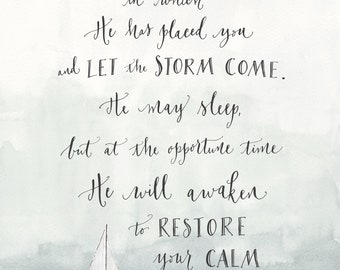 in which
He has placed you
and LET the STORM COME.
He may sleep,
but at the opportune time
He will awaken
to RESTORE
your CALM